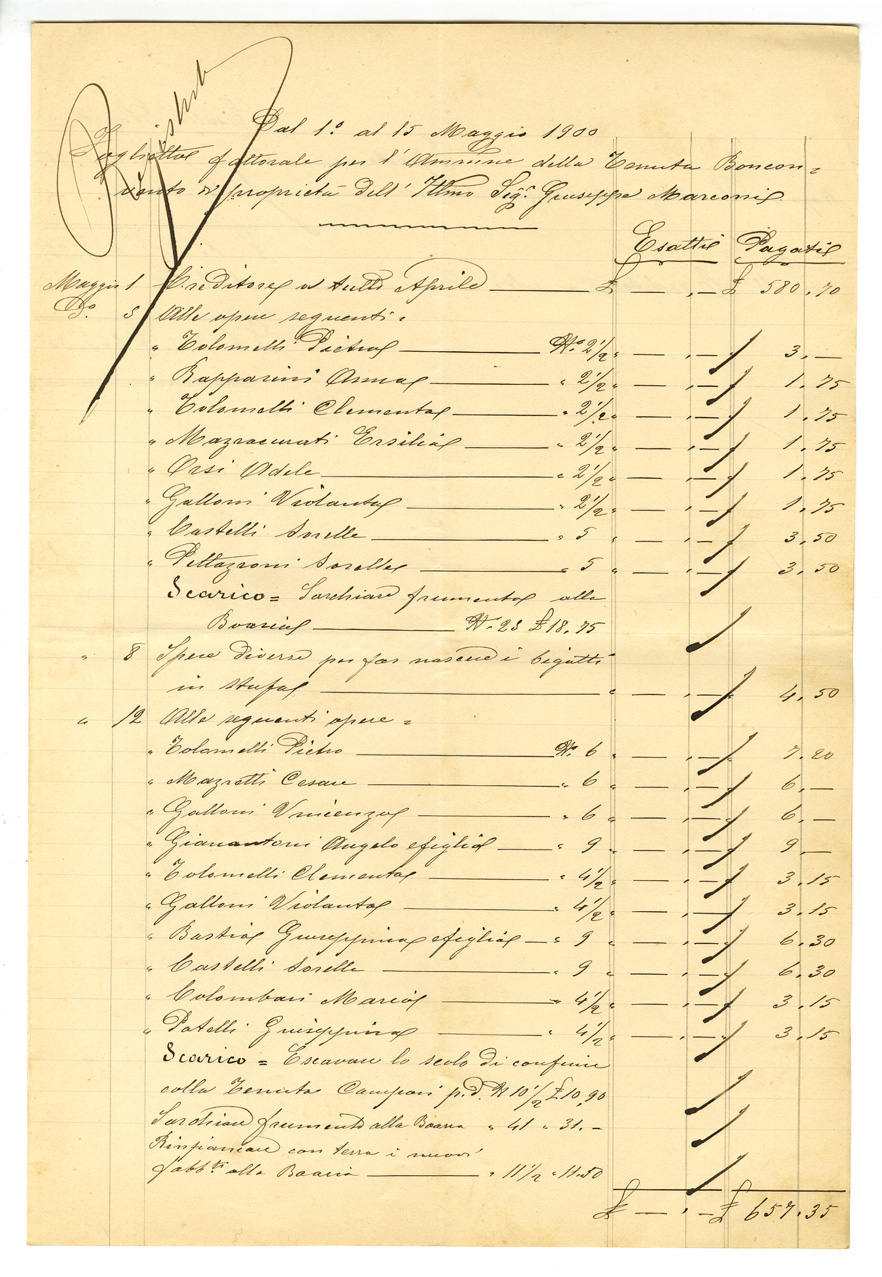 Registrata
Dal 1.º al 15 Maggio 1900
Foglietto fattorale per l'Ammne della Tenuta Boncon=
vento di proprietà dell' Illmo Sigr. Giuseppe Marconi
Esatti Pagati
Maggio 1 Creditore a tutto Aprile £ — . — £ 580.70
Do. 5 Alle opere seguenti =
" Tolomelli Pietro No. 2 1/2 " — . — 3. —
" Rapparini Anna " 2 1/2 " — . — 1.75
" Tolomelli Clementa " 2 1/2 " — . — 1.75
" Mazzacurati Ersilia " 2 1/2 " — . — 1.75
" Orsi Adele " 2 1/2 " — . — 1.75
" Galloni Violanta " 2 1/2 " — . — 1.75
" Castelli Sorelle " 5 " — . — 3.50
" Pettazzoni Sorelle " 5 " — . — 3.50
Scarico = Sarchiare frumento alla
Boaria N. 25 £ 18.75
" 8 Spese diverse per far nascere i bigatti
in stufa " — . — 4.50
" 12 Alle seguenti opere =
" Tolomelli Pietro No. 6 " — . — 7.20
" Mazzetti Cesare " 6 " — . — 6. —
" Galloni Vincenzo " 6 " — . — 6. —
" Gianantoni Angelo e figlio " 9 " — . — 9. —
" Tolomelli Clementa " 4 1/2 " — . — 3.15
" Galloni Violanta " 4 1/2 " — . — 3.15
" Bastia Giuseppina e figlia " 9 " — . — 6.30
" Castelli Sorelle " 9 " — . — 6.30
" Colombari Maria " 4 1/2 " — . — 3.15
" Patelli Giuseppina " 4 1/2 " — . — 3.15
Scarico = Escavare lo scolo di confine
colla Tenuta Campori p.d. N 10 1/2 £ 10.90
Sarchiare frumento alla Boaria " 41 " 31. —
Rinfiancare con terra i nuovi
fabbti alla Boaria " 11 1/2 " 11.50
£ — . — £ 657.35